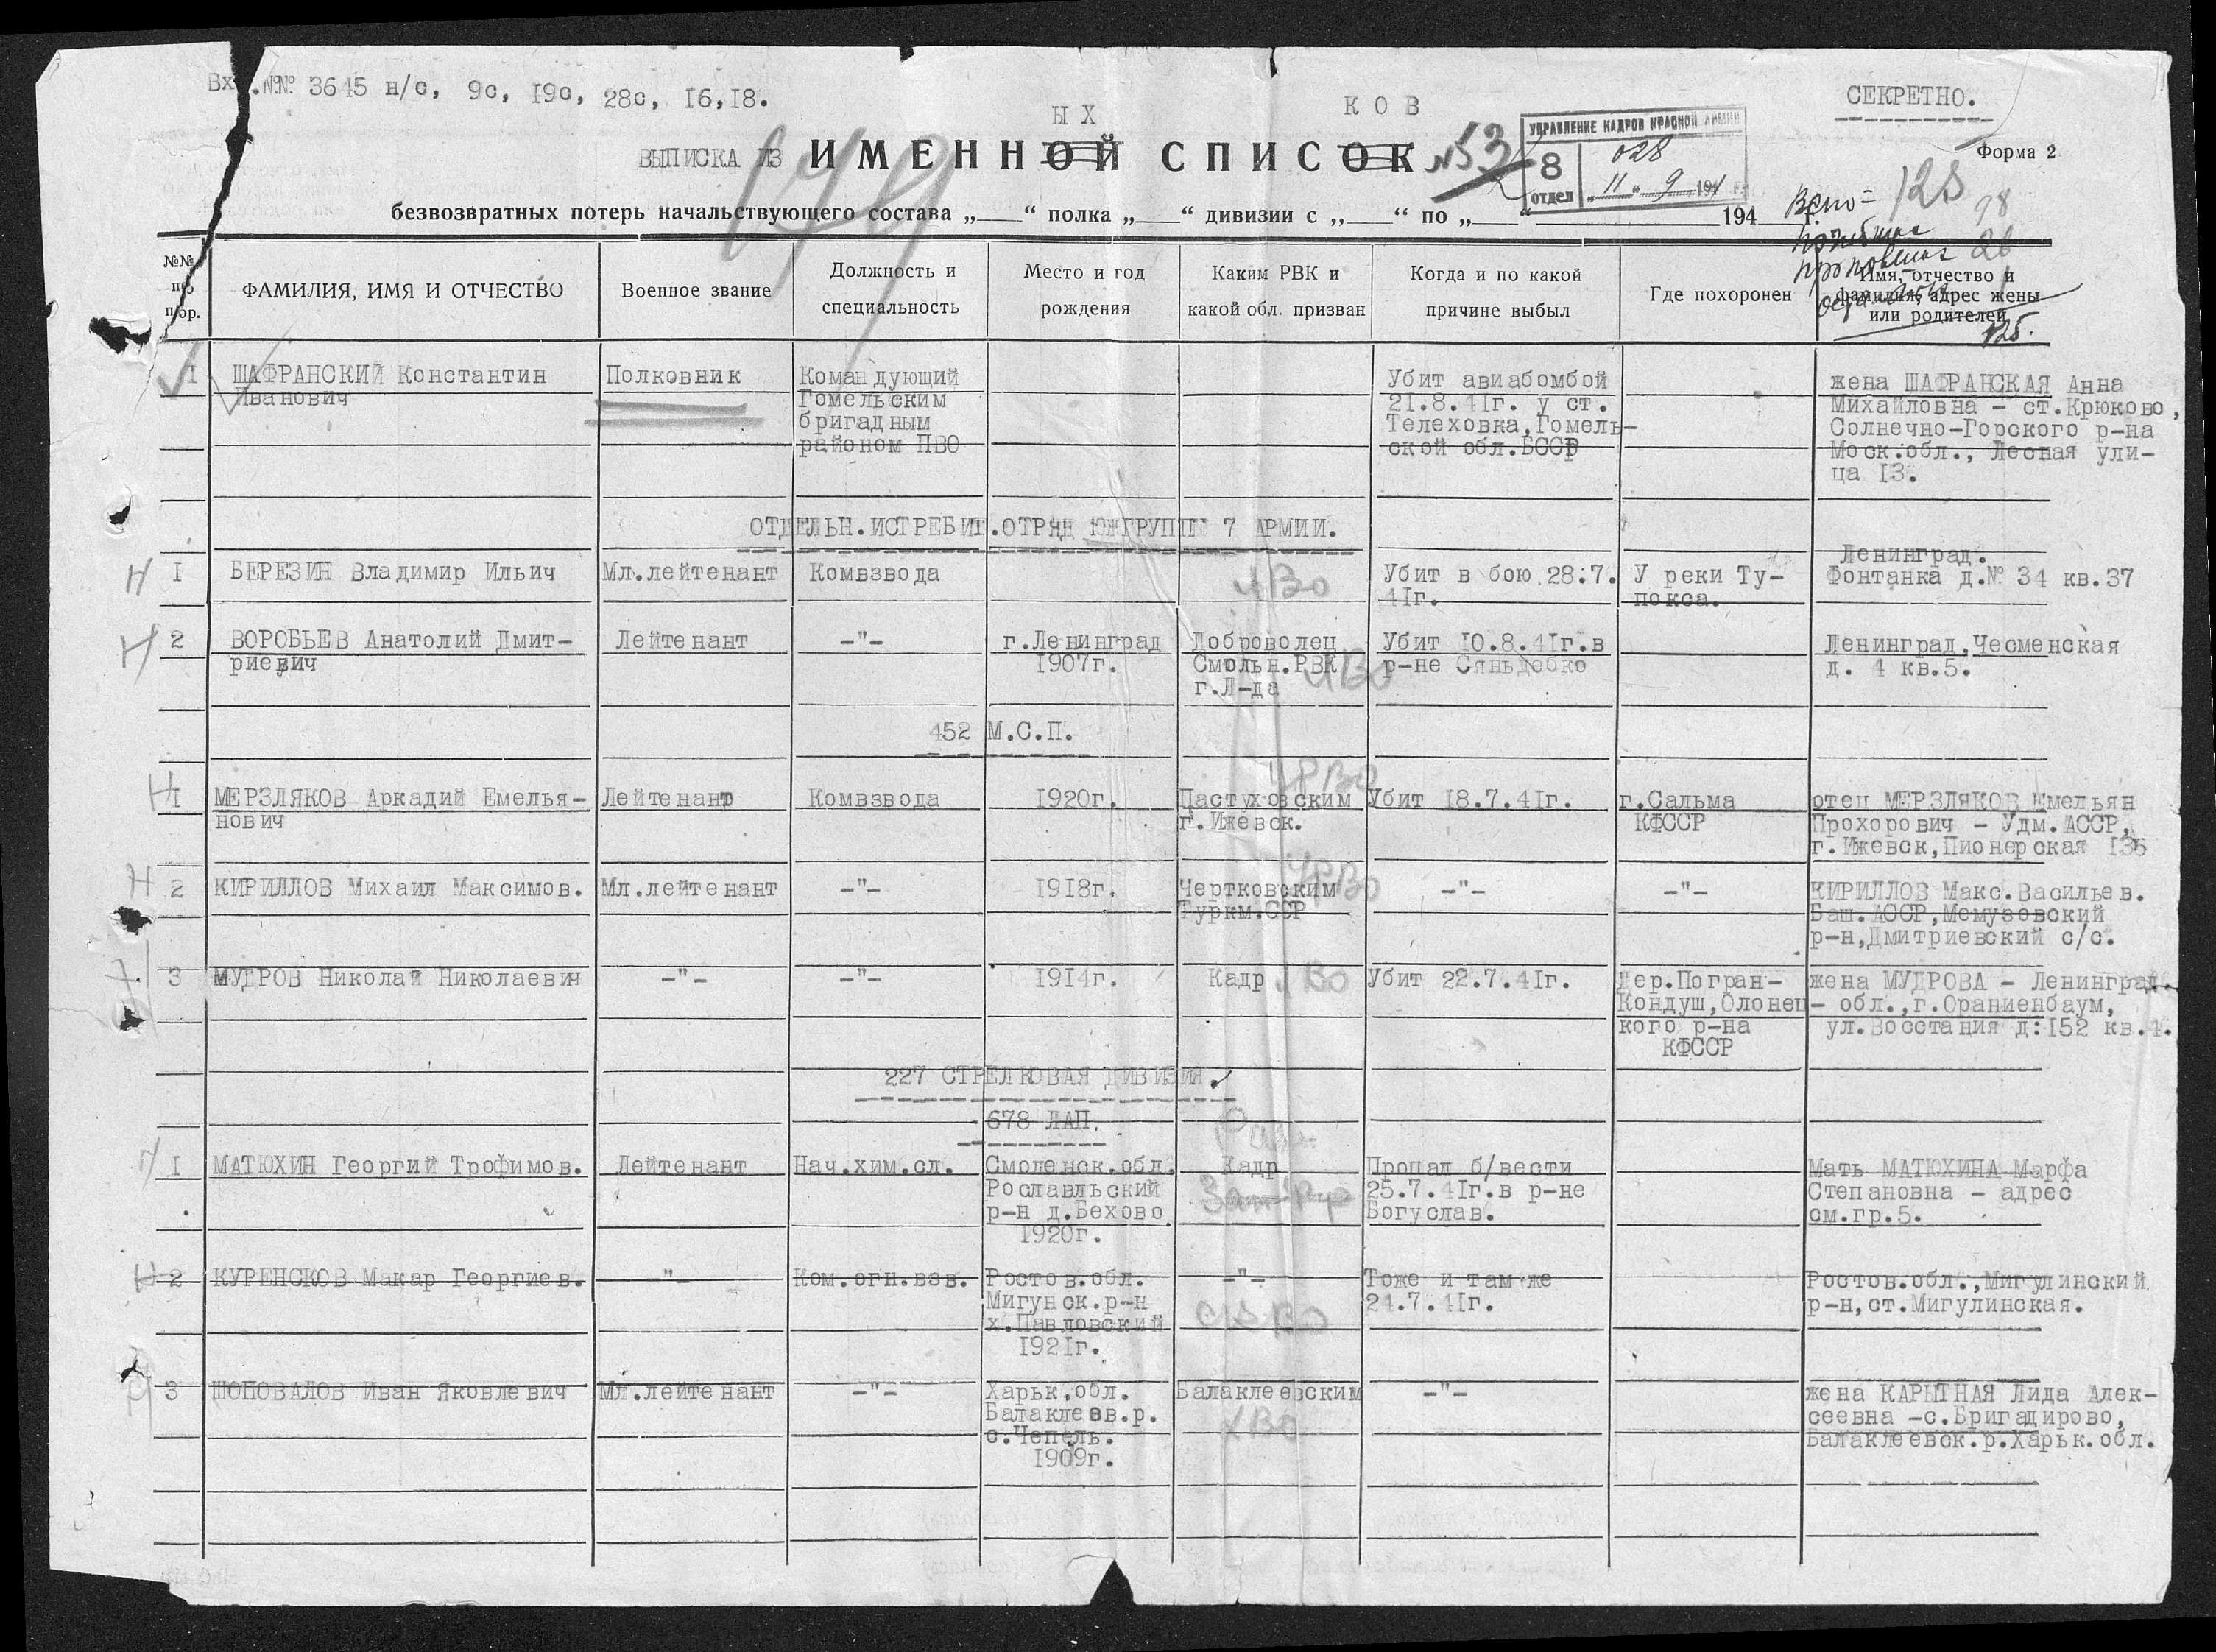 Вх.№№ 3645 н/с, 9с, 19с, 28с, 16,18.
СЕКРЕТНО.
ЫХ КОВ
ВЫПИСКА ИЗ ИМЕННОЙ СПИСОК №53
УПРАВЛЕНИЕ КАДРОВ КРАСНОЙ АРМИИ
8 отдел 028
„11“ 9 1941
Форма 2
безвозвратных потерь начальствующего состава „___“ полка „___“ дивизии с „___“ по „___“ 194 г.
Всего = 128
98
26
125.
179
№№ по пор.
ФАМИЛИЯ, ИМЯ И ОТЧЕСТВО
Военное звание
Должность и специальность
Место и год рождения
Каким РВК и какой обл. призван
Когда и по какой причине выбыл
Где похоронен
Имя, отчество и фамилия, адрес жены или родителей
1 ШАФРАНСКИЙ Константин Полковник Командующий Убит авиабомбой жена ШАФРАНСКАЯ Анна
Иванович Гомельским 21.8.41г. у ст. Михайловна - ст.Крюково,
бригадным Телеховка,Гомель- Солнечно-Горского р-на
районом ПВО ской обл.БССР Моск.обл., Лесная ули-
ца 13.
ОТДЕЛЬН.ИСТРЕБИТ.ОТРЯД ЮЖГРУППЫ 7 АРМИИ.
Ленинград.
Н 1 БЕРЕЗИН Владимир Ильич Мл.лейтенант Комвзвода Убит в бою 28.7. У реки Ту- Фонтанка д.№ 34 кв.37
41г. покса.
Н 2 ВОРОБЬЕВ Анатолий Дмит- Лейтенант -"- г.Ленинград Доброволец Убит 10.8.41г.в Ленинград,Чесменская
риевич 1907г. Смольн.РВК р-не Сяньдебко д. 4 кв.5.
г.Л-да
452 М.С.П.
УРВО
Н 1 МЕРЗЛЯКОВ Аркадий Емелья- Лейтенант Комвзвода 1920г. Пастуховским Убит 18.7.41г. г.Сальма отец МЕРЗЛЯКОВ Емельян
нович г.Ижевск. КФССР Прохорович - Удм.АССР,
г.Ижевск,Пионерская 136
УРВО
Н 2 КИРИЛЛОВ Михаил Максимов. Мл.лейтенант -"- 1918г. Чертковским -"- -"- КИРИЛЛОВ Макс.Васильев.
Туркм.ССР Баш.АССР,Мемузовский
р-н,Дмитриевский с/с.
3 МУДРОВ Николай Николаевич -"- -"- 1914г. Кадр ВО Убит 22.7.41г. Дер.Погран- жена МУДРОВА - Ленинград.
Кондуш,Олонец- обл.,г.Ораниенбаум,
кого р-на ул.Восстания д:152 кв.4.
КФССР
227 СТРЕЛКОВАЯ ДИВИЗИЯ.
678 ЛАП.
1 МАТЮХИН Георгий Трофимов. Лейтенант Нач.хим.сл. Смоленск.обл. Кадр Пропал б/вести Мать МАТЮХИНА Марфа
Рославльский 25.7.41г.в р-не Степановна - адрес
р-н д.Бехово Богуслав. см.гр.5.
1920г.
Н 2 КУРЕНСКОВ Макар Георгиев. -"- Ком.огн.взв. Ростов.обл. -"- Тоже и там же Ростов.обл.,Мигулинский
Мигунск.р-н 24.7.41г. р-н,ст.Мигулинская.
х.Павловский
1921г.
3 ШОПОВАЛОВ Иван Яковлевич Мл.лейтенант -"- Харьк.обл. Балаклеевским -"- жена КАРЫТНАЯ Лида Алек-
Балаклеев.р. ХВО сеевна -с.Бригадирово,
с.Чепель. Балаклеевск.р.Харьк.обл.
1909г.